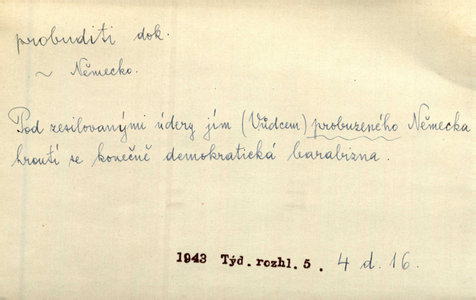 probuditi dok.
~ Německo.
Pod zesilovanými údery jím (Vůdcem) probuzeného Německa
hroutí se konečně demokratická barabizna.
1943 Týd. rozhl. 5. 4 d. 16.